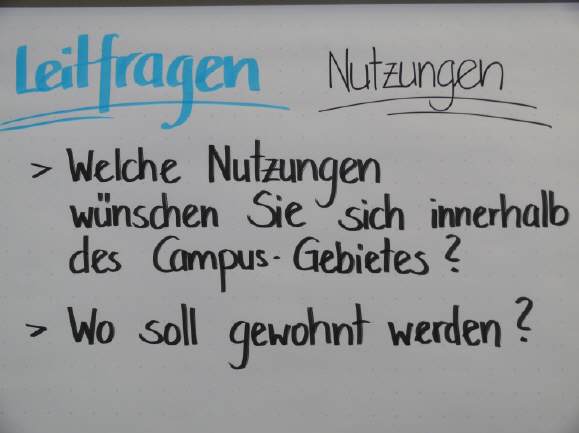 Leitfragen Nutzungen
> Welche Nutzungen
wünschen Sie sich innerhalb
des Campus-Gebietes?
> Wo soll gewohnt werden?